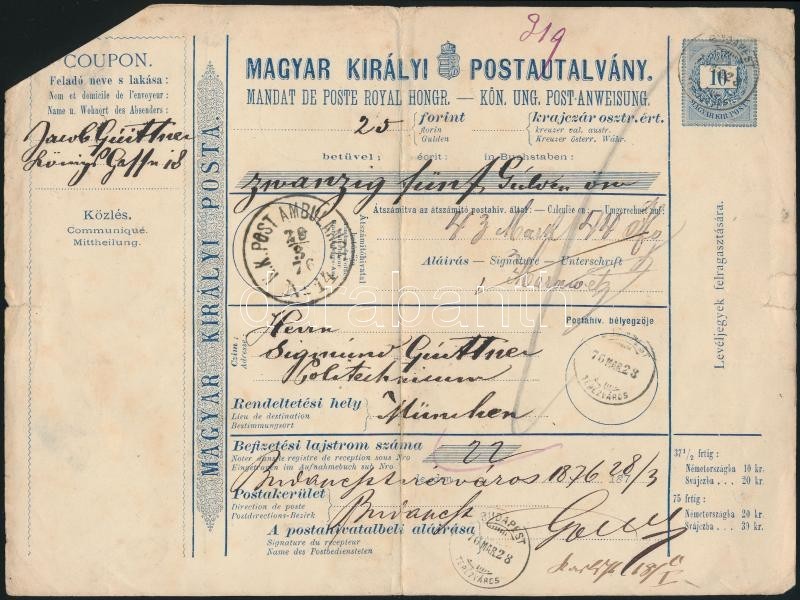 COUPON.
Feladó neve s lakása:
Nom et domicile de l'envoyeur:
Name u. Wohnort des Absenders:
Jacob Güttner
Königs Gasse 18
Közlés.
Communiqué.
Mittheilung.
MAGYAR KIRÁLYI POSTA.
319
MAGYAR KIRÁLYI POSTAUTALVÁNY.
MANDAT DE POSTE ROYAL HONGR. — KÖN. UNG. POST-ANWEISUNG.
10
MAGYAR KIR. POSTA
25 forint krajczár osztr. ért.
florin kreuzer val. austr.
Gulden Kreuzer österr. Währ.
betüvel: écrit: in Buchstaben:
zwanzig fünf Gulden öw
Átszámitva az átszámitó postahiv. által: - Calculée en: - Umgerechnet auf:
43 Mark 44
Átszámitóhivatal
Aláirás — Signature — Unterschrift
K.K. POST AMBULANCE
Czim:
Adresse:
Herrn
Sigmund Güttner
Politechnicum
München
Postahiv. bélyegzője
BUDAPEST
76 MAR 28
TERÉZVÁROS
Rendeltetési hely
Lieu de destination
Bestimmungsort
Levéljegyek felragasztására.
Befizetési lajstrom száma 22
Noter dans le registre de reception sous Nro
Eingetragen im Aufnahmebuch sub Nro
Budapest terézváros 1876 28/3
187
Postakerület
Direction de poste
Postdirections-Bezirk
Budapest
A postahivatalbeli aláirása
Signature du recepteur
Name des Postbediensteten
BUDAPEST
76 MAR 28
TERÉZVÁROS
37 1/2 frtig:
Németországba 10 kr.
Svájczba . . 20 kr.
75 frtig:
Németországba 20 kr.
Svájczba . . 30 kr.
darabanth